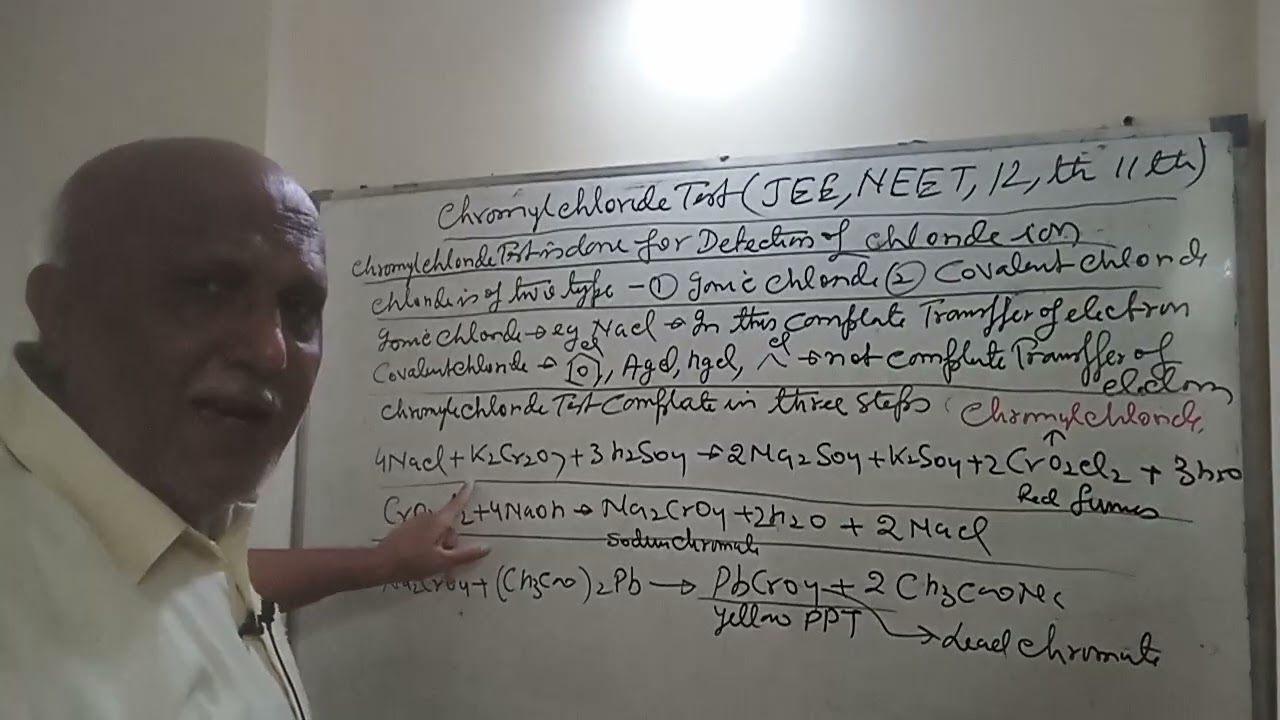 Chromylchloride Test (JEE, NEET, 12, th 11 th)
Chromylchloride Test is done for Detection of chloride ion
Chloride is of two type - ① Ionic chloride ② Covalent chloride
Ionic chloride → eg NaCl → In this complate Transffer of electron
Covalent chloride → [O] Cl, AgCl, HgCl, Cl → not complate Transffer of
electrons
Chromylchloride Test complate in three steps Chromylchloride,
4NaCl + K2Cr2O7 + 3H2SO4 → 2Na2SO4 + K2SO4 + 2CrO2Cl2 + 3H2O
↑
Red fumes
CrO 2 + 4NaOH → Na2CrO4 + 2H2O + 2NaCl
Sodium chromate
Na2CrO4 + (CH3COO)2Pb → PbCrO4 + 2CH3COONa
yellow PPT → Lead chromate